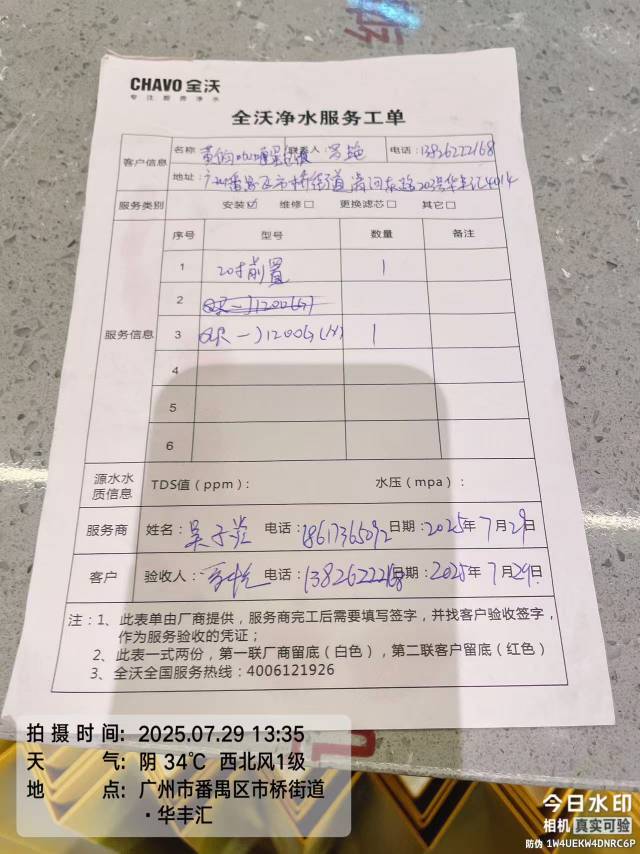 CHAVO 全沃
专注商务净水
全沃净水服务工单
客户信息 名称 联系人： 电话：13826222168
地址：广州番禺区市桥街道 路 号华丰汇4014
服务类别 安装☑ 维修□ 更换滤芯□ 其它□
服务信息 序号 型号 数量 备注
1 20寸前置 1
2
3 1200G(N) 1
4
5
6
源水水质信息 TDS值（ppm）： 水压（mpa）：
服务商 姓名：吴子 电话：18617365092 日期：2025年7月29日
客户 验收人： 电话：13826222168 日期：2025年7月29日
注：1、此表单由厂商提供，服务商完工后需要填写签字，并找客户验收签字，
作为服务验收的凭证；
2、此表一式两份，第一联厂商留底（白色），第二联客户留底（红色）
3、全沃全国服务热线：4006121926
拍摄时间：2025.07.29 13:35
天气：阴 34℃ 西北风1级
地点：广州市番禺区市桥街道
·华丰汇
今日水印
相机 真实可验
防伪 1W4UEKW4DNRC6P